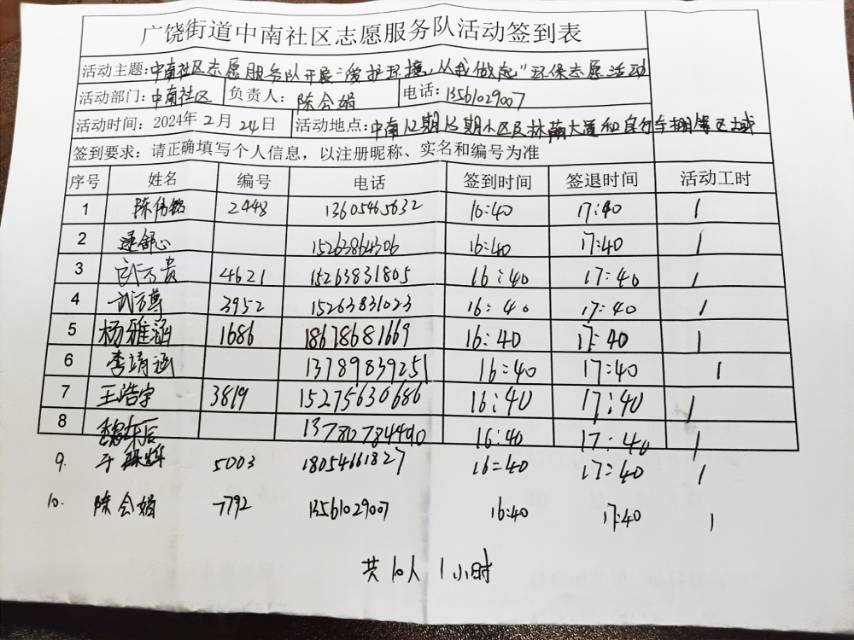 广饶街道中南社区志愿服务队活动签到表
活动主题：中南社区志愿服务队开展"爱护环境，从我做起"环保志愿活动
活动部门：中南社区 负责人：陈会娟 电话：13561029007
活动时间：2024年2月24日 活动地点：中南12期15期小区及林荫大道和自行车棚等区域
签到要求：请正确填写个人信息，以注册昵称、实名和编号为准
序号 姓名 编号 电话 签到时间 签退时间 活动工时
1 陈伟 2448 13605465632 16:40 17:40 1
2 舒心 15263864306 16:40 17:40 1
3 武万贵 4621 15263831805 16:40 17:40 1
4 武万尊 3952 15263831023 16:40 17:40 1
5 杨雅涵 1686 18678681669 16:40 17:40 1
6 李靖涵 13789839251 16:40 17:40 1
7 王浩宇 3819 15275636686 16:40 17:40 1
8 16:40 17:40 1
9. 于 5003 18054661827 16:40 17:40 1
10. 陈会娟 7792 13561029007 16:40 17:40 1
共10人 1小时